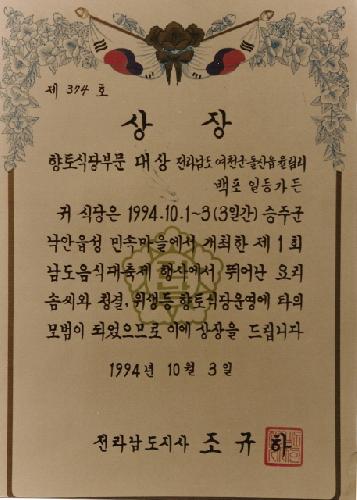 제 374 호
상 장
향토식당부문 대상 전라남도 여천군 돌산읍
백포 일동가든
귀 식당은 1994.10.1~3(3일간) 승주군
낙안읍성 민속마을에서 개최한 제1회
남도음식대축제 행사에서 뛰어난 요리
솜씨와 청결, 위생등 향토식당운영에 타의
모범이 되었으므로 이에 상장을 드립니다
1994년 10월 3일
전라남도지사 조규하